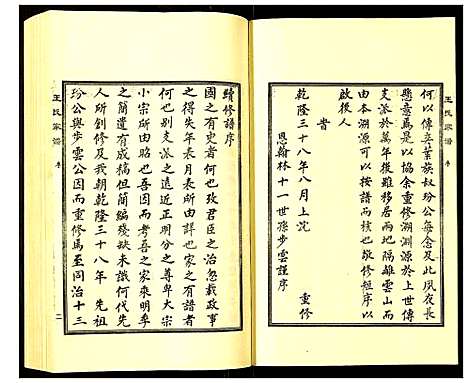 王氏家譜
序
何以傳奕業族叔玢公每念及此夙夜長
懸意焉是以協余重修溯淵源於上世傳
支派於萬年後雖移居兩地隔離雲山而
由本溯源可以按譜而核也敬修短序以
啟後人
時
乾隆三十八年八月上浣 重修
恩翰林十一世孫步雲謹序
續修譜序
國之有史者何也玫君臣之治忽載政事
之得失年表月表所由詳也家之有譜者
何也別支派之遠近正明分之尊卑大宗
小宗所由昭也吾因而考吾之家來明季
之簡舊有成稿但簡編殘缺未識何代先
人所創修及我朝乾隆三十八年 先祖
玢公與步雲公因而重修焉至同治十三
王氏家譜
序
二